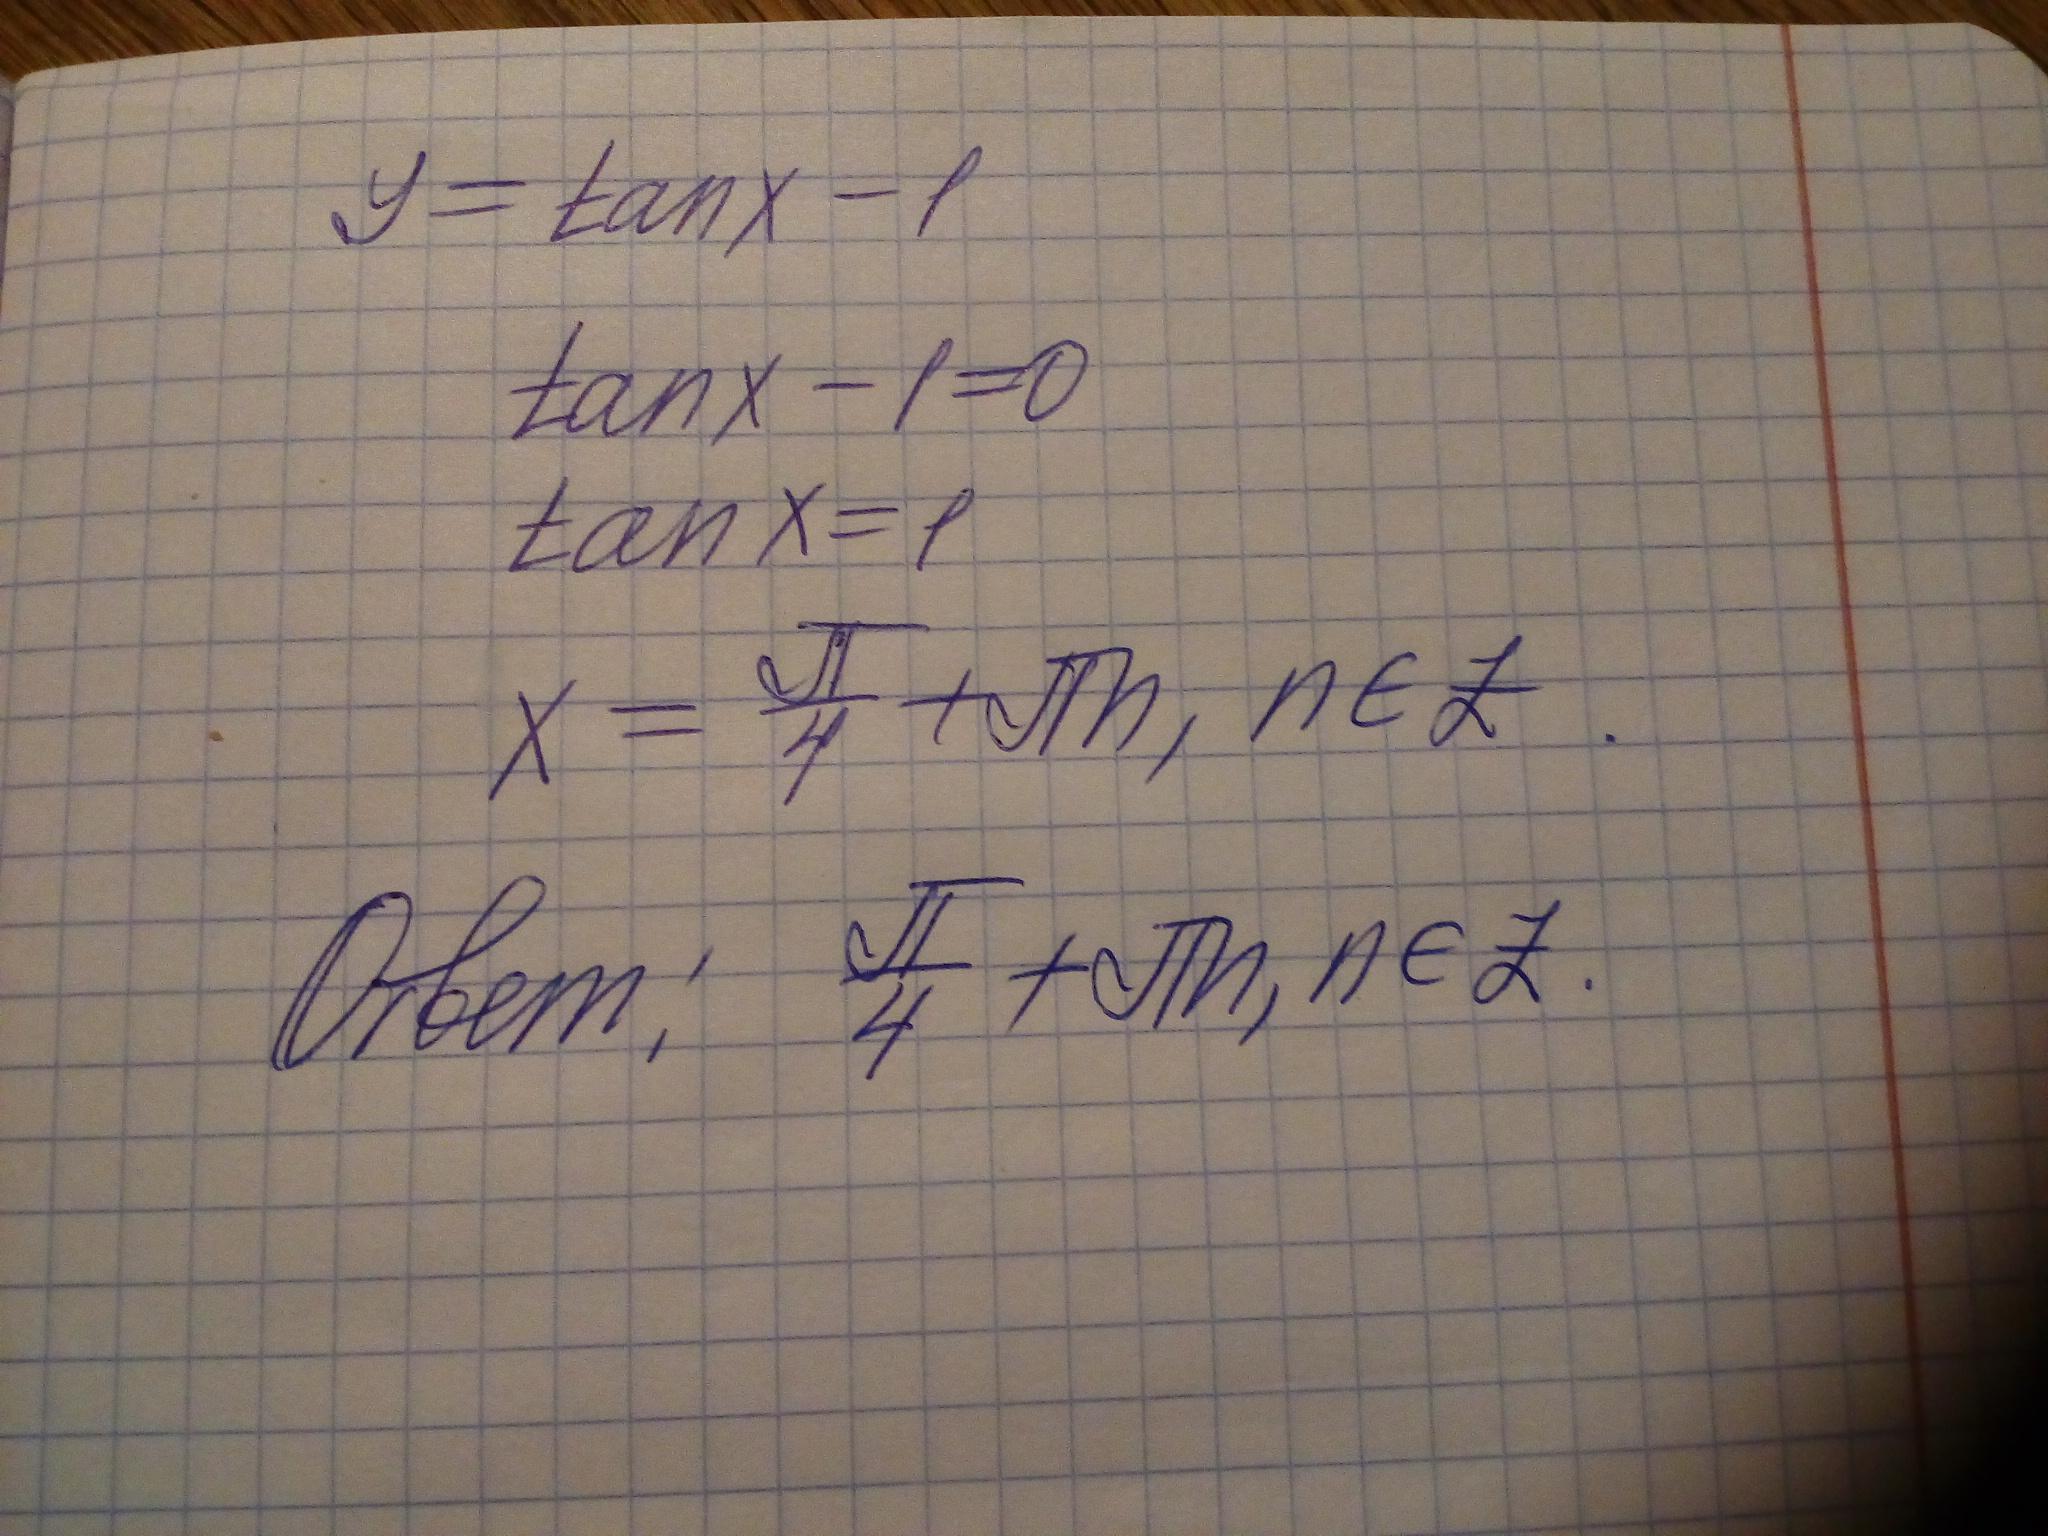 y = tan x − 1
tan x − 1 = 0
tan x = 1
x = π/4 + πn, n ∈ Z.
Ответ: π/4 + πn, n ∈ Z.